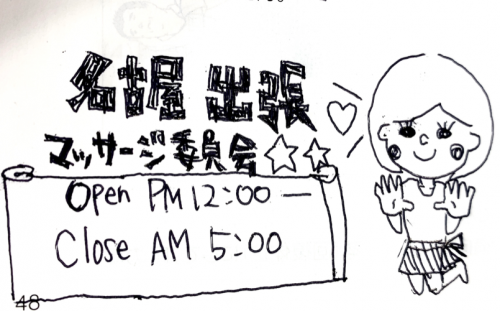 名古屋 出張
マッサージ委員会☆☆
Open PM 12:00 —
Close AM 5:00
48